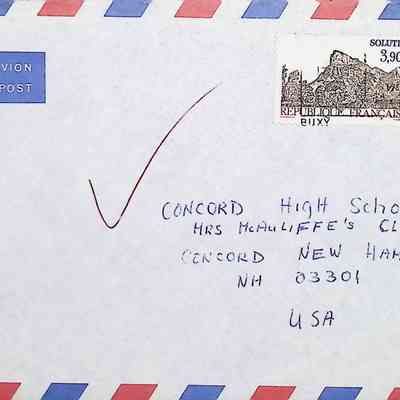 VION
POST
SOLUTR
3,90
REPUBLIQUE FRANÇAISE
BUXY
CONCORD HIGH SCHO
MRS MCAULIFFE'S CL
CONCORD NEW HAM
NH 03301
USA